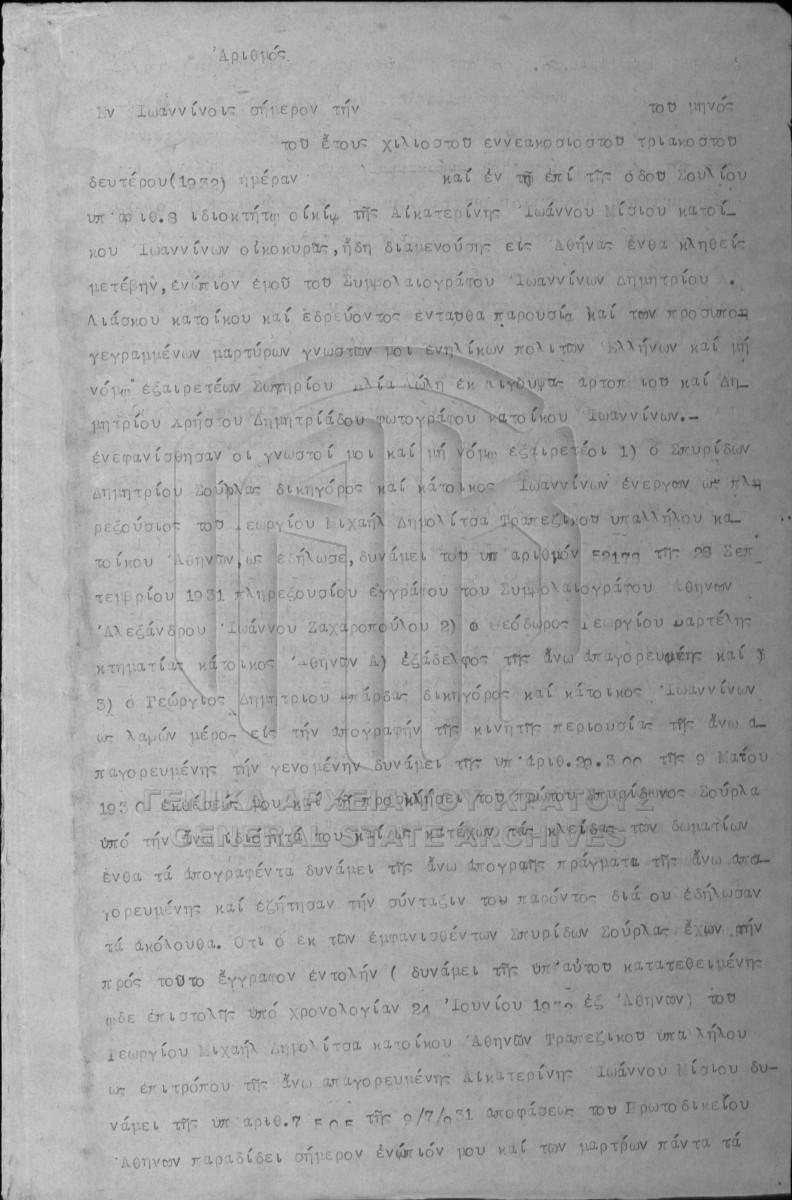 Ἀριθμός
Εν Ιωαννίνοις σήμερον τήν του μηνός
του ἔτους χιλιοστου εννεακοσιοστου τριακοστου
δευτέρου(1932) ημέραν καί ἐν τῇ ἐπί τῆς οδου Σουλίου
υπ'αριθ.8 ιδιοκτήτῳ οἰκίᾳ τῆς Αἰκατερίνης Ἰωάννου Μίσιου κατοί-
κου Ιωαννίνων οἰκοκυρᾶς,ἤδη διαμενούσης εἰς Ἀθήνας ἔνθα κληθείς
μετέβην,ενώπιον ἐμοῦ του Συμβολαιογράφου Ἰωαννίνων Δημητρίου
Λιάσκου κατοίκου καί εδρεύοντος ἐνταυθα παρουσίᾳ καί των προσυπο-
γεγραμμένων μαρτύρων γνωστῶν μοι ενηλίκων πολιτων Ἑλλήνων καί μή
νόμῳ ἐξαιρετέων Σωτηρίου ἐκ αρτοποιου καί Δη-
μητρίου Χρήστου Δημητριάδου φωτογράφου κατοίκου Ἰωαννίνων.-
ἐνεφανίσθησαν οι γνωστοί μοι καί μή νόμῳ εξαιρετέοι 1) ο Σπυρίδων
Δημητρίου Σούρλας δικηγόρος καί κάτοικος Ἰωαννίνων ἐνεργων ὡς πλη
ρεξούσιος του Γεωργίου Μιχαήλ Δημολίτσα Τραπεζικου υπαλλήλου κα-
τοίκου Ἀθηνων,ως εδήλωσε,δυνάμει του υπ'αριθμόν 52173 τῆς 28 Σεπ
τεμβρίου 1931 πληρεξουσίου εγγράφου του Συμβολαιογράφου Ἀθηνων
Ἀλεξάνδρου Ἰωάννου Ζαχαροπούλου 2) ο Θεόδωρος Γεωργίου Βαρτέλης
κτηματίας κάτοικος Ἀθηνων Α) ἐξάδελφος τῆς ἄνω απαγορευμένης καί
3) ο Γεώργιος Δημητριου δικηγόρος καί κάτοικος Ἰωαννίνων
ως λαβών μέρος εἰς τήν απογραφήν τῆς κινητης περιουσίας τῆς ἄνω α
παγορευμένης τήν γενομένην δυνάμει τῆς υπ'αριθ.29.300 τῆς 9 Μαΐου
1930 ἐκθέσεώς μου καί τῇ προσκλήσει του πρώτου Σπυρίδωνος Σούρλα
ὑπό τήν ἄνω ιδιότητά του καί ὡς κατέχων τάς κλείδας των δωματίων
ἔνθα τά απογραφέντα δυνάμει τῆς ἄνω απογραφῆς πράγματα τῆς ἄνω απα-
γορευμένης καί ἐζήτησαν τήν σύνταξιν του παρόντος διά ου ἐδήλωσαν
τά ακόλουθα. Οτι ο ἐκ των ἐμφανισθέντων Σπυρίδων Σούρλας ἔχων τήν
πρός τοῦτο ἔγγραφον ἐντολήν ( δυνάμει τῆς ὑπ'αὐτου κατατεθειμένης
ᾧδε ἐπιστολῆς ὑπό χρονολογίαν 24 Ἰουνίου 1932 ἐξ Ἀθηνων) του
Γεωργίου Μιχαήλ Δημολίτσα κατοίκου Ἀθηνῶν Τραπεζικου υπαλλήλου
ως ἐπιτρόπου τῆς ἄνω απαγορευμένης Αἰκατερίνης Ἰωάννου Μίσιου δυ-
νάμει τῆς ὑπ'αριθ.7505 τῆς 9/7/931 αποφάσεως του Πρωτοδικείου
Ἀθηνων παραδίδει σήμερον ἐνώπιόν μου καί των μαρτρων πάντα τά
ΓΕΝΙΚΑ ΑΡΧΕΙΑ ΤΟΥ ΚΡΑΤΟΥΣ
GENERAL STATE ARCHIVES